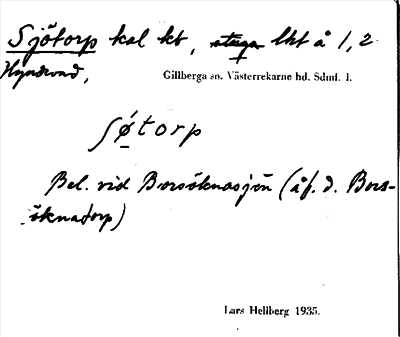 Sjötorp kal kt, stuga lht å 1,2
Hyndevad,
Gillberga sn. Västerrekarne hd. Sdml. 1.
ʃǿtorp
Bel. vid Borsöknasjön (åf. d. Bors-
öknatorp)
Lars Hellberg 1935.